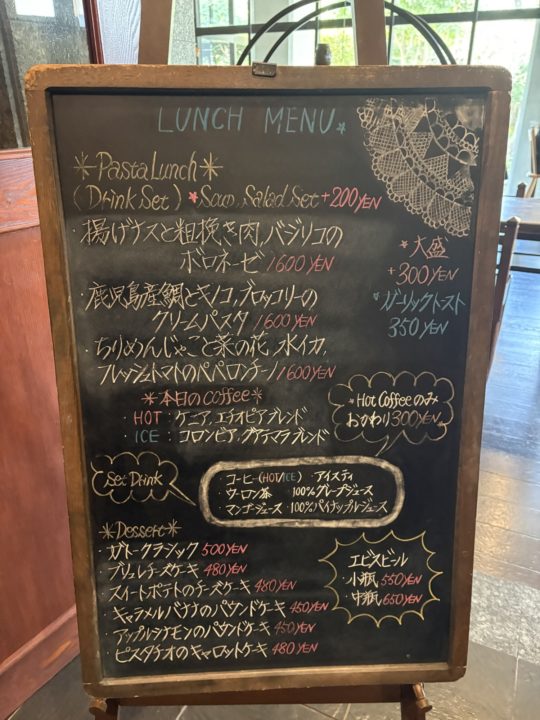 LUNCH MENU
Pasta Lunch
(Drink Set) Soup, Salad Set +200YEN
・揚げナスと粗挽き肉,バジリコの
ボロネーゼ 1600YEN
・鹿児島産鯛とキノコ,ブロッコリーの
クリームパスタ 1600YEN
・ちりめんじゃこと菜の花,水イカ,
フレッシュトマトのペペロンチーノ 1600YEN
大盛
+300YEN
ガーリックトースト
350YEN
本日のcoffee
・HOT: ケニア,エチオピアブレンド
・ICE: コロンビア,グァテマラブレンド
Hot Coffeeのみ
おかわり300YEN
Set Drink
・コーヒー(HOT/ICE) ・アイスティ
・ウーロン茶 ・100%グレープジュース
・マンゴージュース ・100%パイナップルジュース
Dessert
・ガトークラシック 500YEN
・ブリュレチーズケーキ 480YEN
・スイートポテトのチーズケーキ 480YEN
・キャラメルバナナのパウンドケーキ 450YEN
・アップルシナモンのパウンドケーキ 450YEN
・ピスタチオのキャロットケーキ 480YEN
エビスビール
小瓶 550YEN
中瓶 650YEN